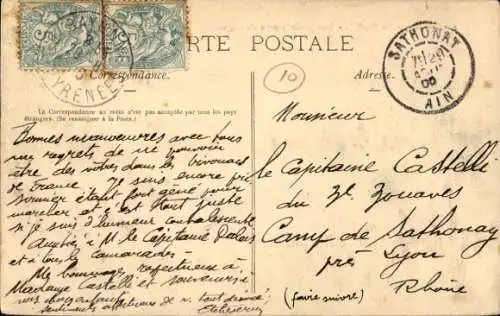 CARTE POSTALE
Correspondance.
Adresse.
La Correspondance au recto n'est pas acceptée par tous les pays
étrangers. (Se renseigner à la Poste.)
SATHONAY
AIN
BAYONNE
PYRENEES
10
Bonnes manœuvres avec tous
mes regrets de ne pouvoir
être des vôtres dans le bivouac
de France. Je suis encore pri
sonnier étant fort gêné pour
marcher et c'est tout juste
si je suis d'humeur
Amitiés à M le Capitaine
et à tous les camarades.
Mes hommages respectueux à
Madame Castelli et
vos
sentiments affectueux de v. tout dévoué
Monsieur
le Capitaine Castelli
du 3e Zouaves
Camp de Sathonay
près Lyon
Rhône
(faire suivre)